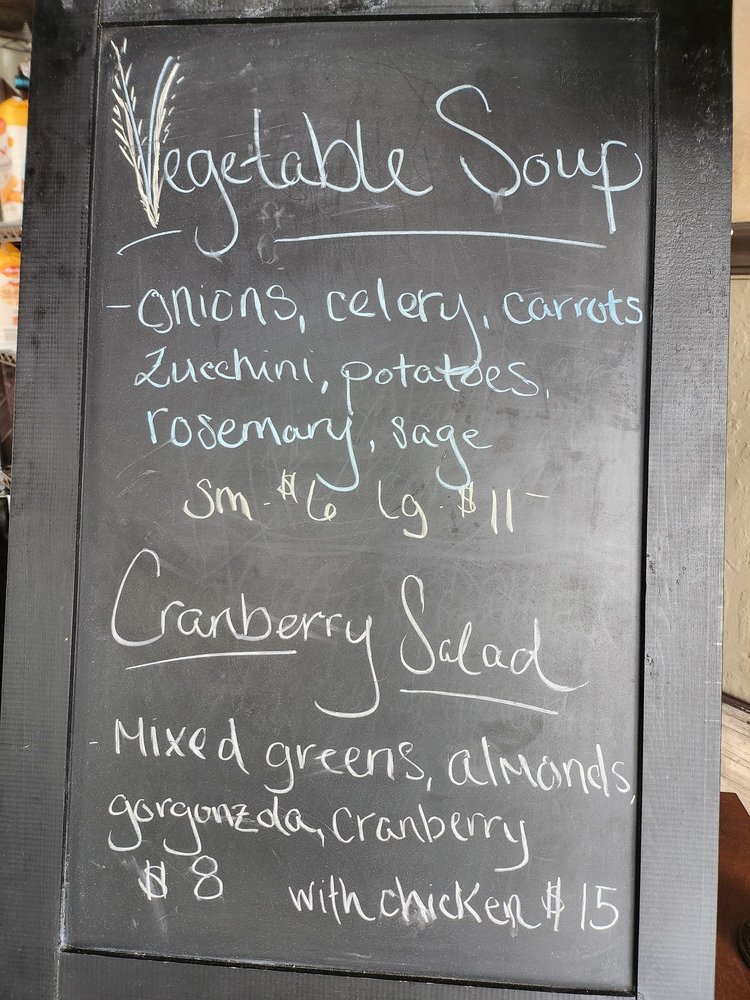 Vegetable Soup
- onions, celery, carrots
zucchini, potatoes,
rosemary, sage
sm - $6 lg - $11 -
Cranberry Salad
- Mixed greens, almonds,
gorgonzola, cranberry
$8 with chicken $15